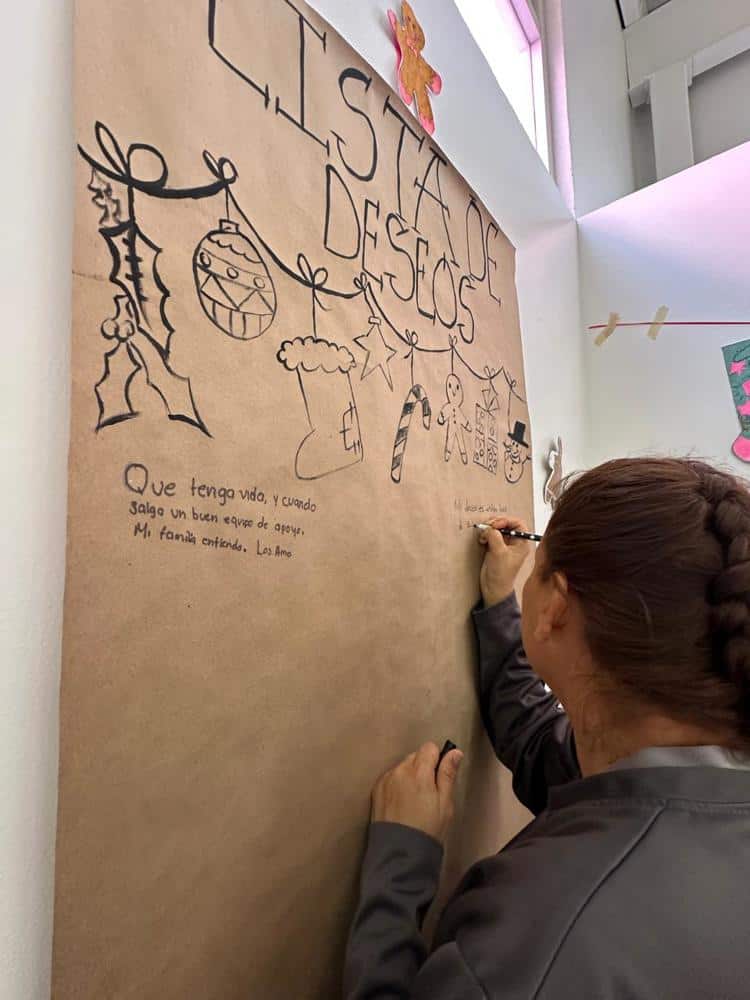 LISTA DE
DESEOS
Que tenga vida, y cuando
salga un buen equipo de apoyo.
Mi familia entienda. Los Amo